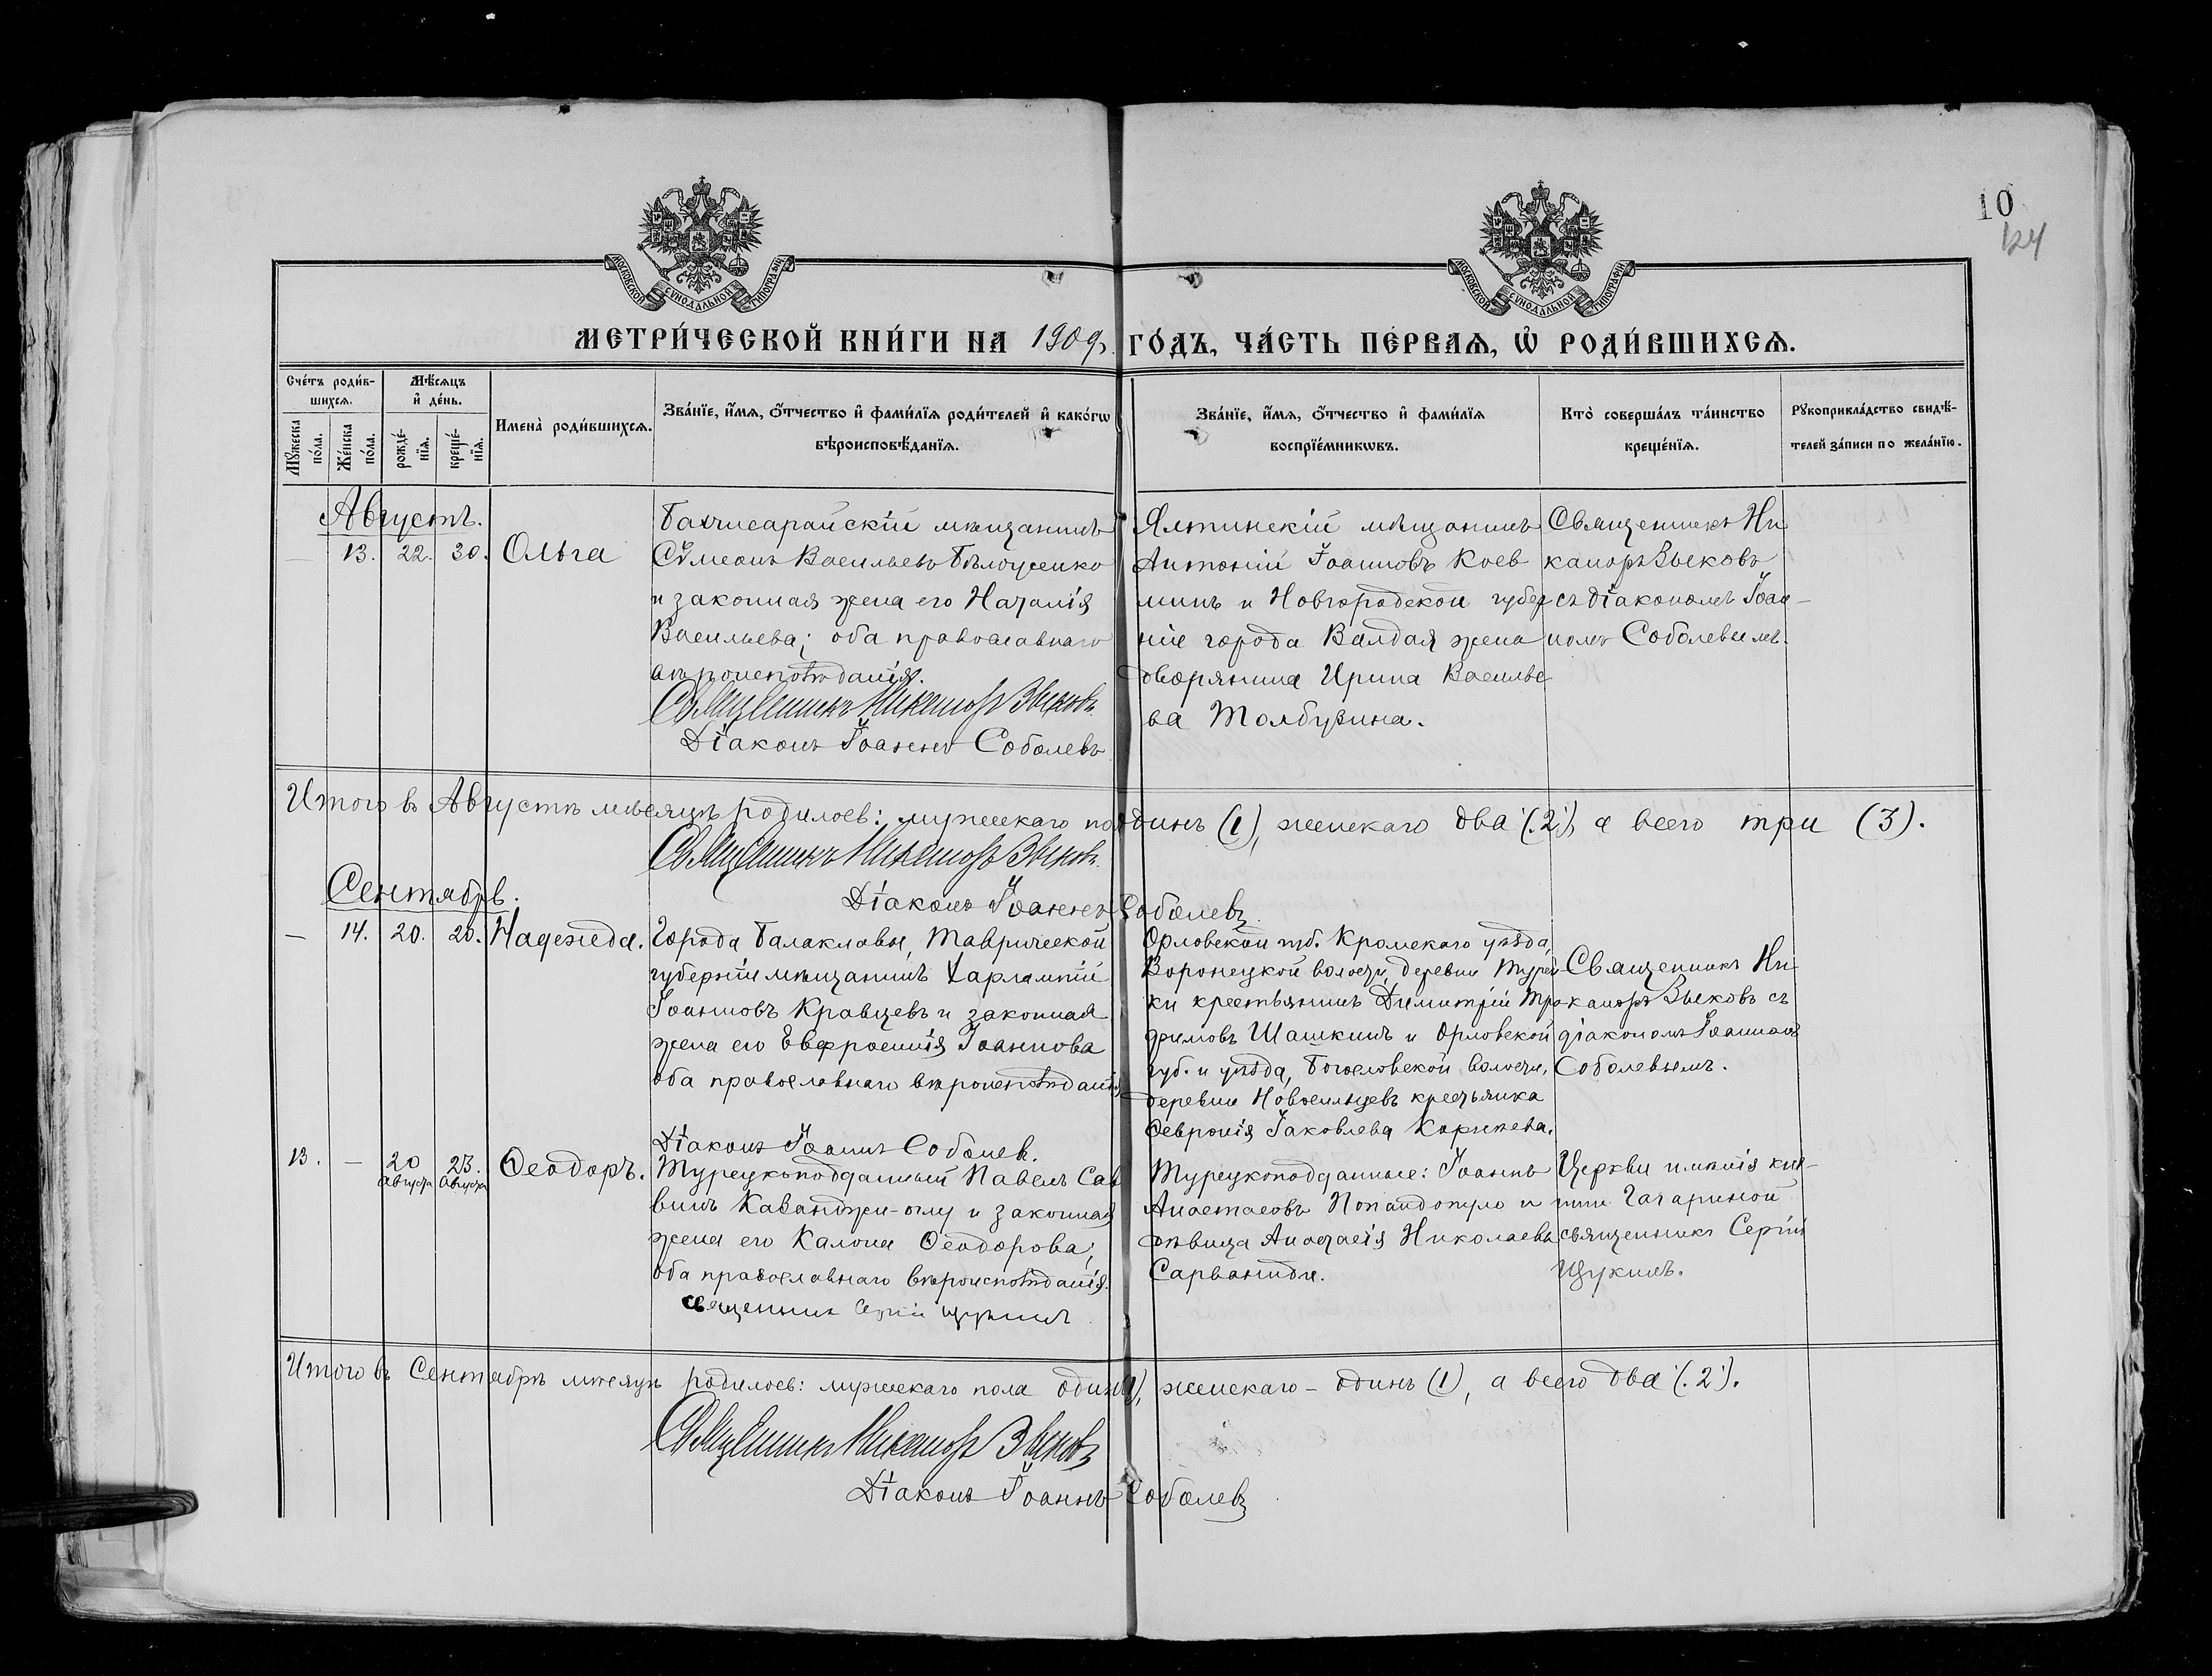 10
124
МОСКОВСКОЙ СѴНОДАЛЬНОЙ ТИПОГРАФІИ
МОСКОВСКОЙ СѴНОДАЛЬНОЙ ТИПОГРАФІИ
МЕТРИ́ЧЕСКОЙ КНИ́ГИ НА 1909 г. ГО́ДЪ, ЧА́СТЬ ПЕ́РВАЯ, Ѡ҆ РОДИ́ВШИХСЯ.
Сче́тъ роди́в-
шихся.
Мѣ́сяцъ
и҆ де́нь.
Мꙋ́жеска
по́ла.
Же́нска
по́ла.
рожде́-
нїя.
креще́-
нїя.
Имена̀ роди́вшихся.
Зва́нїе, и҆́мя, ѻ҆́тчество и҆ фами́лїя роди́телей и҆ како́гѡ
вѣроисповѣ́данїя.
Зва́нїе, и҆́мя, ѻ҆́тчество и҆ фами́лїя
воспрїе́мникѡвъ.
Кто̀ соверша́лъ та́инство
креще́нїя.
Рꙋкоприкла́дство свидѣ́-
телей за́писи по жела́нїю.
Августъ.
— 13. 22. 30. Ольга
Бахчисарайскій мѣщанинъ
Сѵмеонъ Васильевъ Бѣлоусенко
и законная жена его Наталія
Васильева; оба православнаго
вѣроисповѣданія.
Священникъ Никаноръ Зыковъ
Діаконъ Іоаннъ Соболевъ
Ялтинскій мѣщанинъ
Антоній Іоанновъ Коев
минъ и Новгородской губер
ніи города Валдая жена
дворянина Ирина Василье
ва Толбузина.
Священникъ Ни
каноръ Зыковъ
съ діакономъ Іоан-
номъ Соболевымъ.
Итого въ Августѣ мѣсяцѣ родилось: мужскаго пол одинъ (1), женскаго два (2), а всего три (3).
Священникъ Никаноръ Зыковъ.
Діаконъ Іоаннъ Соболевъ
Сентябрь.
— 14. 20. 20. Надежда.
Города Балаклавы, Таврической
губерніи мѣщанинъ Харлампій
Іоанновъ Кравцевъ и законная
жена его Евфросинія Іоаннова
оба православнаго вѣроисповѣданія
Діаконъ Іоаннъ Соболев.
Орловской губ. Кромскаго уѣзда,
Воронецкой волости, деревни Турей
ки крестьянинъ Димитрій Тро
фимовъ Шашкинъ и Орловской
губ. и уѣзда, Богословской волости,
деревни Новосильцевъ крестьянка
Февронія Іаковлева Корнева.
Священникъ Ни
каноръ Зыковъ съ
діакономъ Іоанномъ
Соболевымъ.
13. — 20 Августа 23. Августа Ѳеодоръ.
Турецкоподданный Павелъ Сав
винъ Каванджи-оглу и законная
жена его Калопи Ѳеодорова;
оба православнаго вѣроисповѣданія.
священникъ Сергій Щукинъ
Турецкоподданные: Іоаннъ
Анастасовъ Попандопуло и
дѣвица Анастасія Николаева
Сарваниди.
Церкви имѣнія кня-
гини Гагариной
священникъ Сергій
Щукинъ.
Итого въ Сентябрѣ мѣсяцѣ родилось: мужскаго пола одинъ (1), женскаго - одинъ (1), а всего два (2).
Священникъ Никаноръ Зыковъ
Діаконъ Іоаннъ Соболевъ